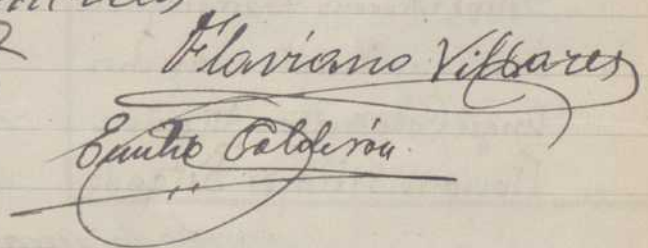 Flaviano Villares
Emilio Calderón